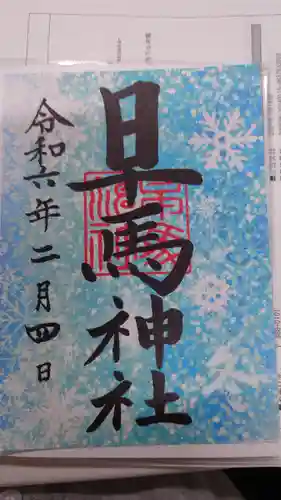 早馬神社
令和六年二月四日